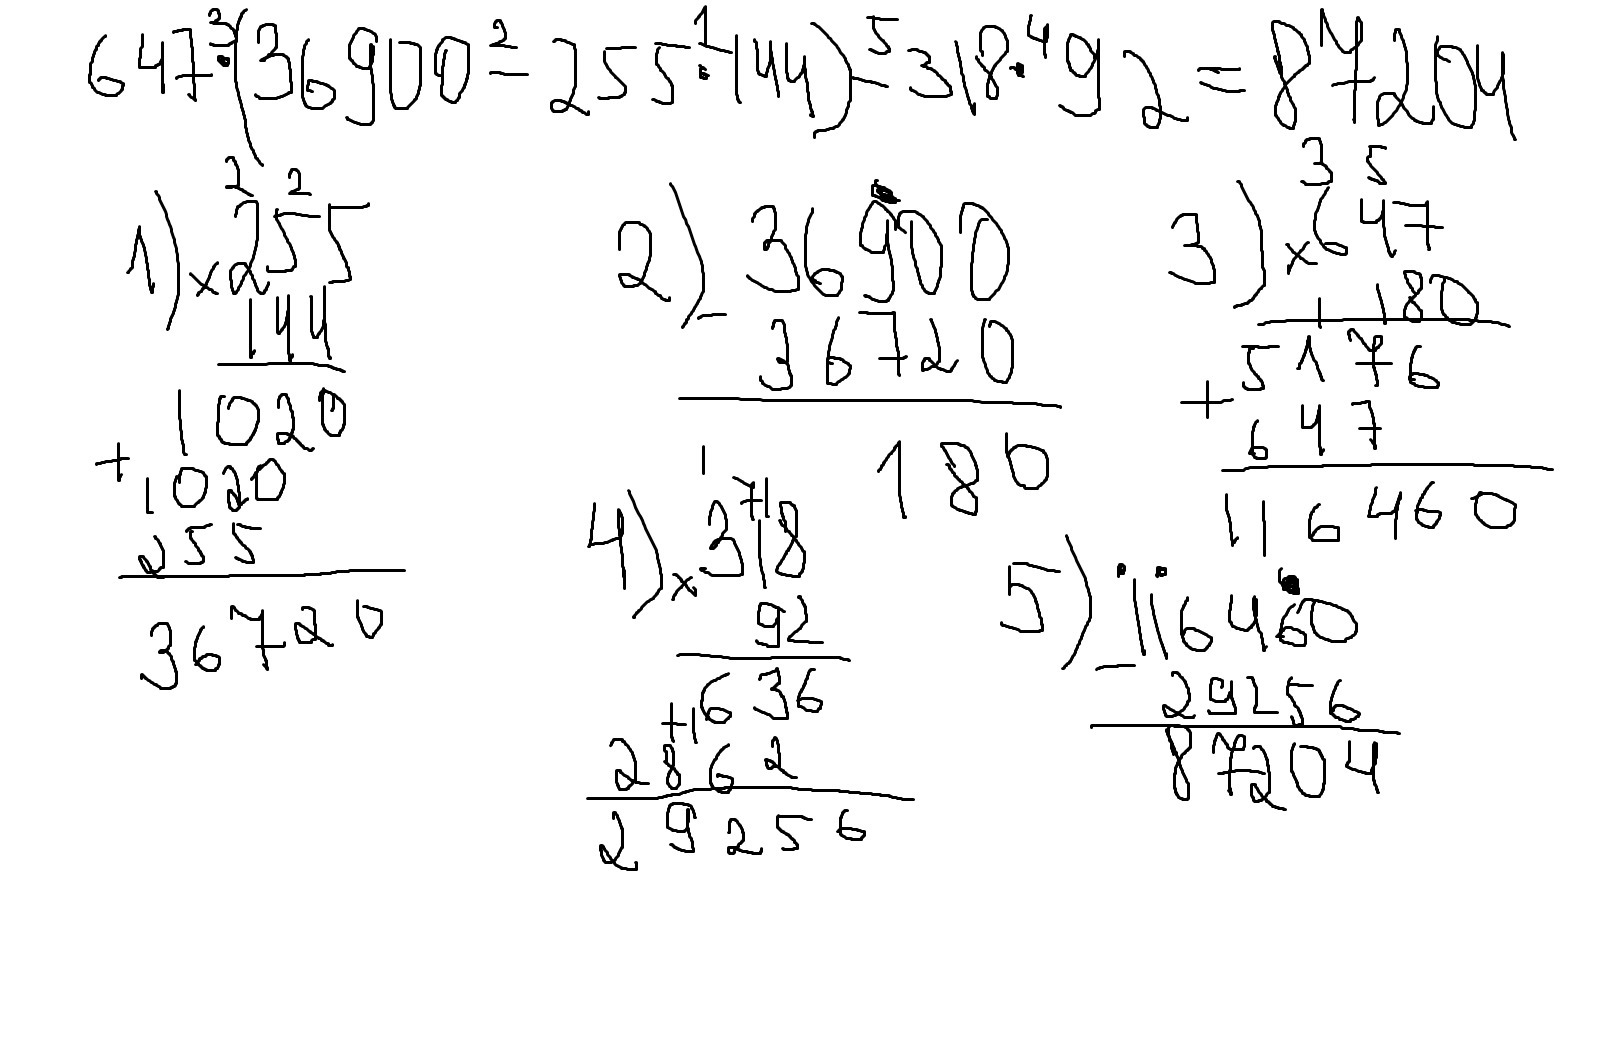 647·(36900-255·144)-318·92=87204
3 2 1 5 4
1) 2 2
×255
144
1020
+1020
255
36720
2) -36900
36720
180
3) 3 5
×647
180
5176
+647
116460
4) 1 71
×318
92
636
+1
2862
29256
5) -116460
29256
87204